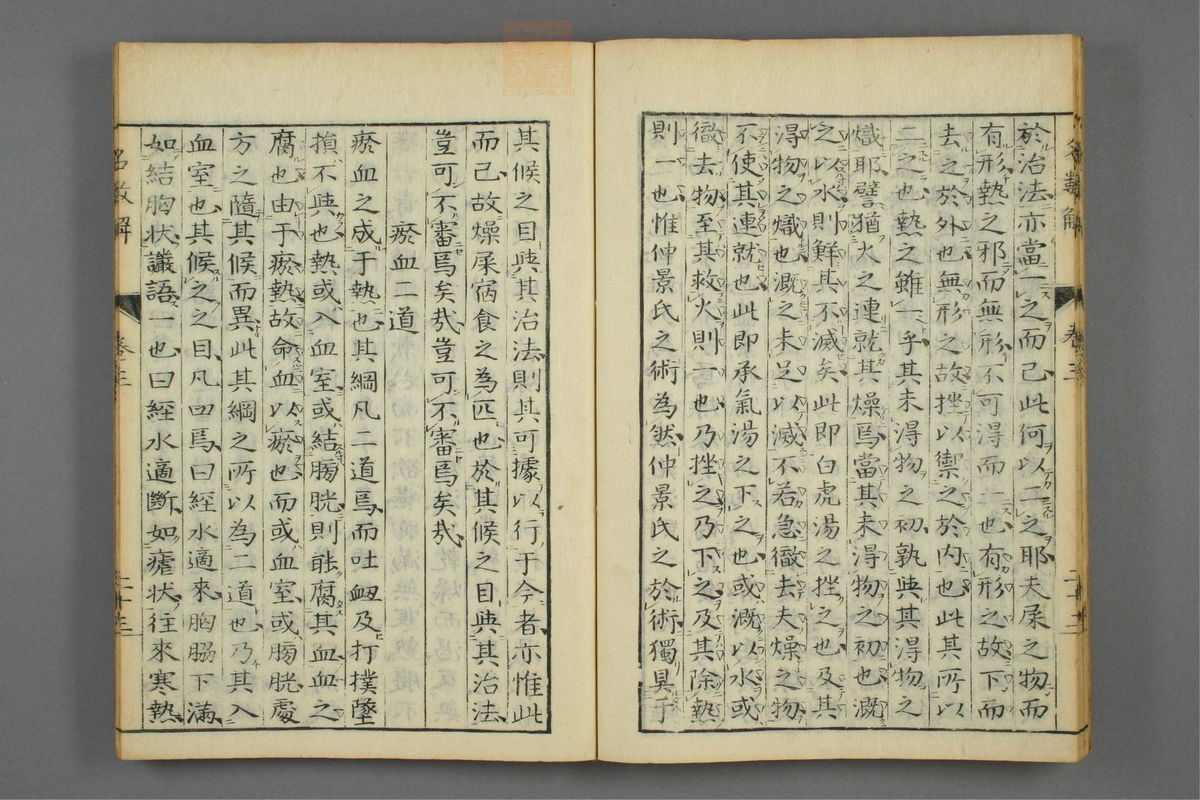 於治法亦當一之而已此何以二之耶夫屎之物而
有形熱之邪而無形不可得而一也有形之故下而
去之於外也無形之故挫以禦之於内也此其所以
二之也熱之雖一乎其未得物之初孰與其得物之
熾耶譬猶火之連就其燥焉當其未得物之初也漑
之以水則鮮其不滅矣此即白虎湯之挫之也及其
得物之熾也漑之未足以滅不若急徹去夫燥之物
不使其連就也此即承氣湯之下之也或漑以水或
徹去物至其救火則一也乃挫之乃下之及其除熱
則一也惟仲景氏之術為然仲景氏之於術獨具于
其候之目與其治法則其可據以行于今者亦惟此
而已故燥屎宿食之為匹也於其候之目與其治法
豈可不審焉矣哉豈可不審焉矣哉
瘀血二道
瘀血之成于熱也其綱凡二道焉而吐衂及打撲墜
損不與也熱或入血室或結膓胱則能腐其血血之
腐也由于瘀熱故命血以瘀也而或血室或膓胱處
方之隨其候而異此其綱之所以為二道也乃其入
血室也其候之目凡四焉曰經水適來胸脇下滿
如結胸状讝語一也曰經水適斷如瘧状往來寒熱
卷三
名數解
卷三
二十三